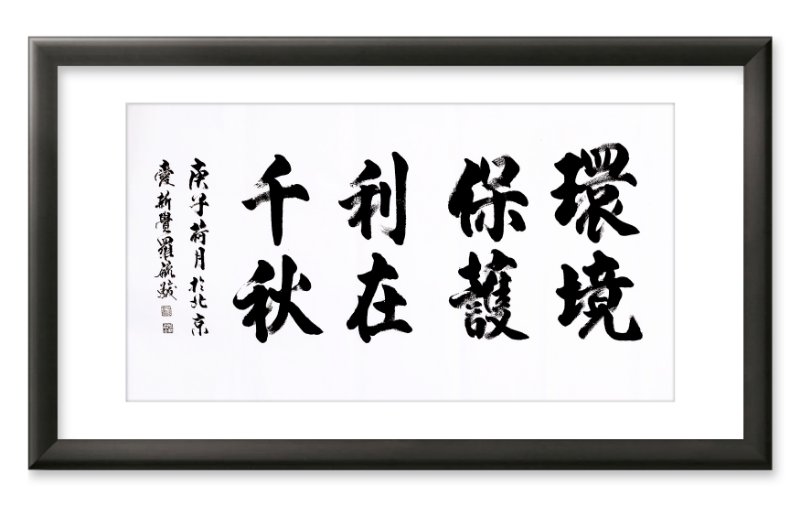 環境
保護
利在
千秋
庚子荷月於北京
愛新覺羅毓